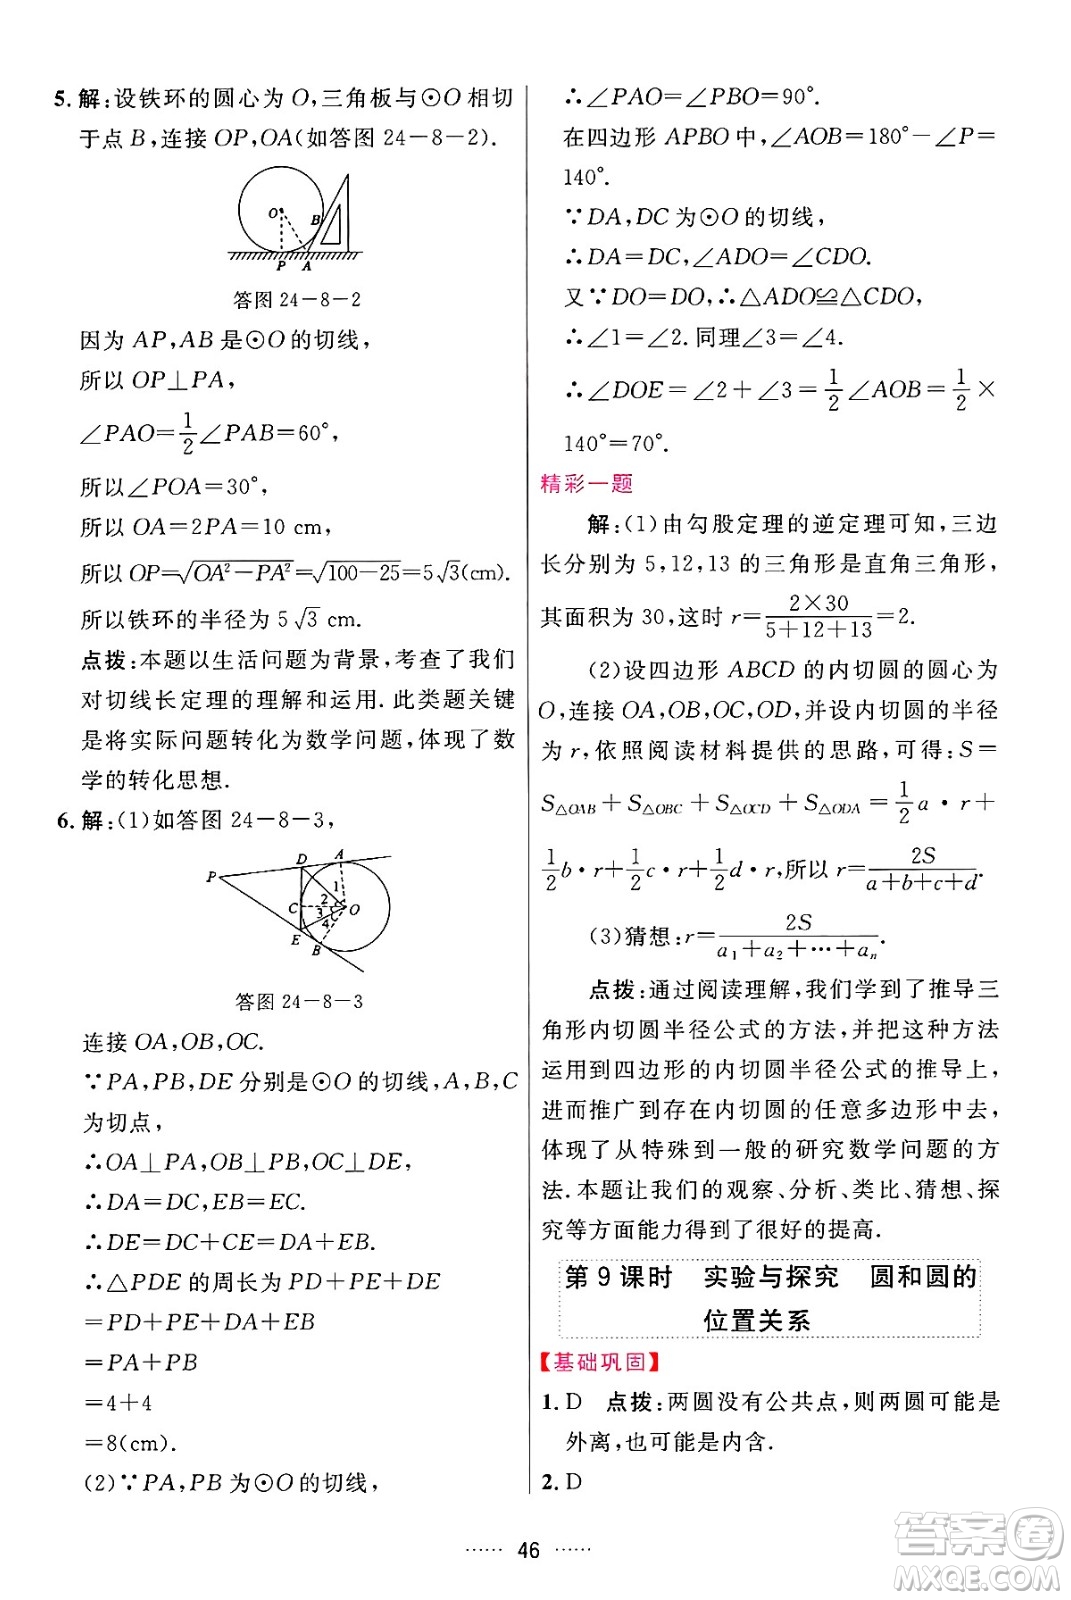 5. 解:设铁环的圆心为 O,三角板与⊙O 相切
于点 B,连接 OP,OA(如答图 24-8-2).
O
B
P A
答图 24-8-2
因为 AP,AB 是⊙O 的切线,
所以 OP⊥PA,
∠PAO=1/2∠PAB=60°,
所以∠POA=30°,
所以 OA=2PA=10 cm,
所以 OP=√(OA²-PA²)=√(100-25)=5√3(cm).
所以铁环的半径为 5√3 cm.
点拨:本题以生活问题为背景,考查了我们
对切线长定理的理解和运用. 此类题关键
是将实际问题转化为数学问题,体现了数
学的转化思想.
6. 解:(1)如答图 24-8-3,
D A
P
1
C 2
3 O
4
E
B
答图 24-8-3
连接 OA,OB,OC.
∵PA,PB,DE 分别是⊙O 的切线,A,B,C
为切点,
∴OA⊥PA,OB⊥PB,OC⊥DE,
∴DA=DC,EB=EC.
∴DE=DC+CE=DA+EB.
∴△PDE 的周长为 PD+PE+DE
=PD+PE+DA+EB
=PA+PB
=4+4
=8(cm).
(2)∵PA,PB为⊙O 的切线,
∴∠PAO=∠PBO=90°.
在四边形 APBO 中,∠AOB=180°-∠P=
140°.
∵DA,DC 为⊙O 的切线,
∴DA=DC,∠ADO=∠CDO.
又∵DO=DO,∴△ADO≌△CDO,
∴∠1=∠2.同理∠3=∠4.
∴∠DOE=∠2+∠3=1/2∠AOB=1/2×
140°=70°.
精彩一题
解:(1)由勾股定理的逆定理可知,三边
长分别为 5,12,13 的三角形是直角三角形,
其面积为 30,这时 r=(2×30)/(5+12+13)=2.
(2)设四边形 ABCD 的内切圆的圆心为
O,连接 OA,OB,OC,OD,并设内切圆的半径
为 r,依照阅读材料提供的思路,可得:S=
S△OAB+S△OBC+S△OCD+S△ODA=1/2a·r+
1/2b·r+1/2c·r+1/2d·r,所以 r=2S/(a+b+c+d).
(3)猜想:r=2S/(a₁+a₂+…+aₙ).
点拨:通过阅读理解,我们学到了推导三
角形内切圆半径公式的方法,并把这种方法
运用到四边形的内切圆半径公式的推导上,
进而推广到存在内切圆的任意多边形中去,
体现了从特殊到一般的研究数学问题的方
法.本题让我们的观察、分析、类比、猜想、探
究等方面能力得到了很好的提高.
第 9 课时 实验与探究 圆和圆的
位置关系
【基础巩固】
1. D 点拨:两圆没有公共点,则两圆可能是
外离,也可能是内含.
2. D
46
答案圈
MXQE.COM